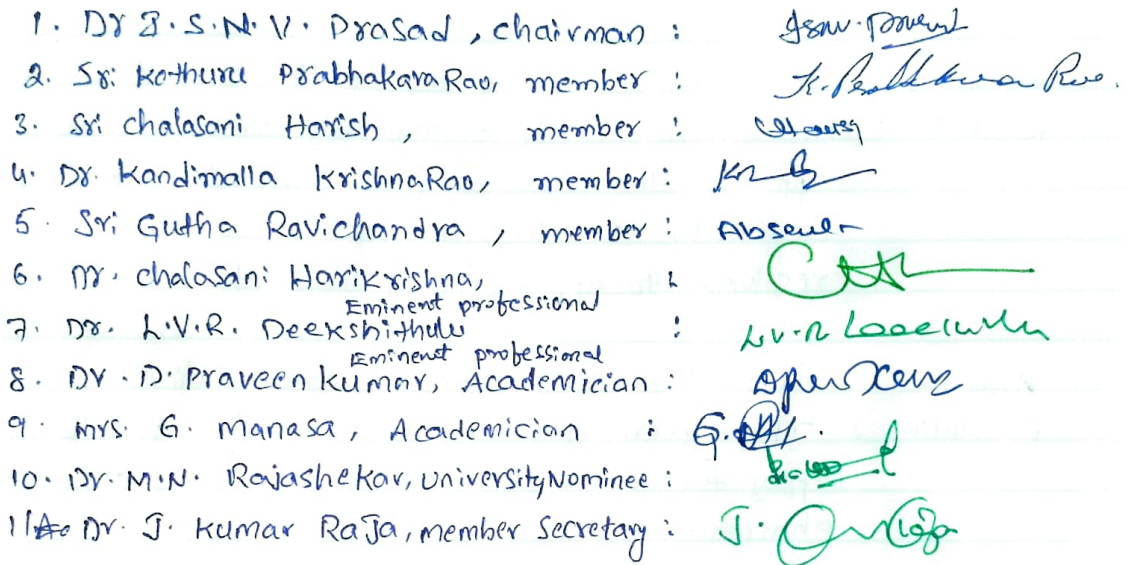 1. Dr J.S.N.V. Prasad, chairman :
2. Sri Kothuru Prabhakara Rao, member : K. Prabhakara Rao.
3. Sri Chalasani Harish, member :
4. Dr. Kandimalla Krishna Rao, member :
5. Sri Gutha Ravichandra, member : Absent
6. Dr. Chalasani Harikrishna, :
Eminent professional
7. Dr. L.V.R. Deekshithulu :
Eminent professional
8. Dr. D. Praveen Kumar, Academician :
9. Mrs. G. Manasa, Academician :
10. Dr. M.N. Rajashekar, University Nominee :
11 Dr. J. Kumar Raja, member Secretary :